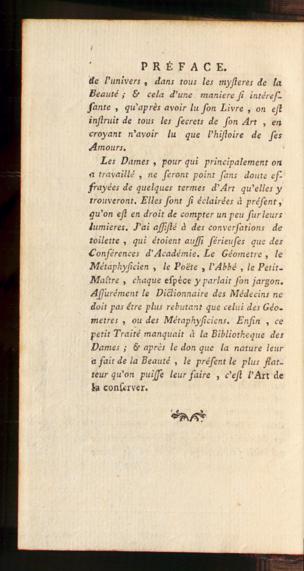 PRÉFACE.
de l'univers, dans tous les myſteres de la
Beauté; & cela d'une maniere ſi intéreſ-
ſante, qu'après avoir lu ſon Livre, on eſt
inſtruit de tous les ſecrets de ſon Art, en
croyant n'avoir lu que l'hiſtoire de ſes
Amours.
Les Dames, pour qui principalement on
a travaillé, ne ſeront point ſans doute ef-
frayées de quelques termes d'Art qu'elles y
trouveront. Elles ſont ſi éclairées à préſent,
qu'on eſt en droit de compter un peu ſur leurs
lumieres. J'ai aſſiſté à des converſations de
toilette, qui étoient auſſi ſérieuſes que des
Conférences d'Académie. Le Géometre, le
Métaphyſicien, le Poëte, l'Abbé, le Petit-
Maître, chaque eſpéce y parlait ſon jargon.
Aſſurément le Dictionnaire des Médecins ne
doit pas être plus rebutant que celui des Géo-
metres, ou des Métaphyſiciens. Enfin, ce
petit Traité manquait à la Bibliotheque des
Dames; & après le don que la nature leur
a fait de la Beauté, le préſent le plus flat-
teur qu'on puiſſe leur faire, c'eſt l'Art de
la conſerver.